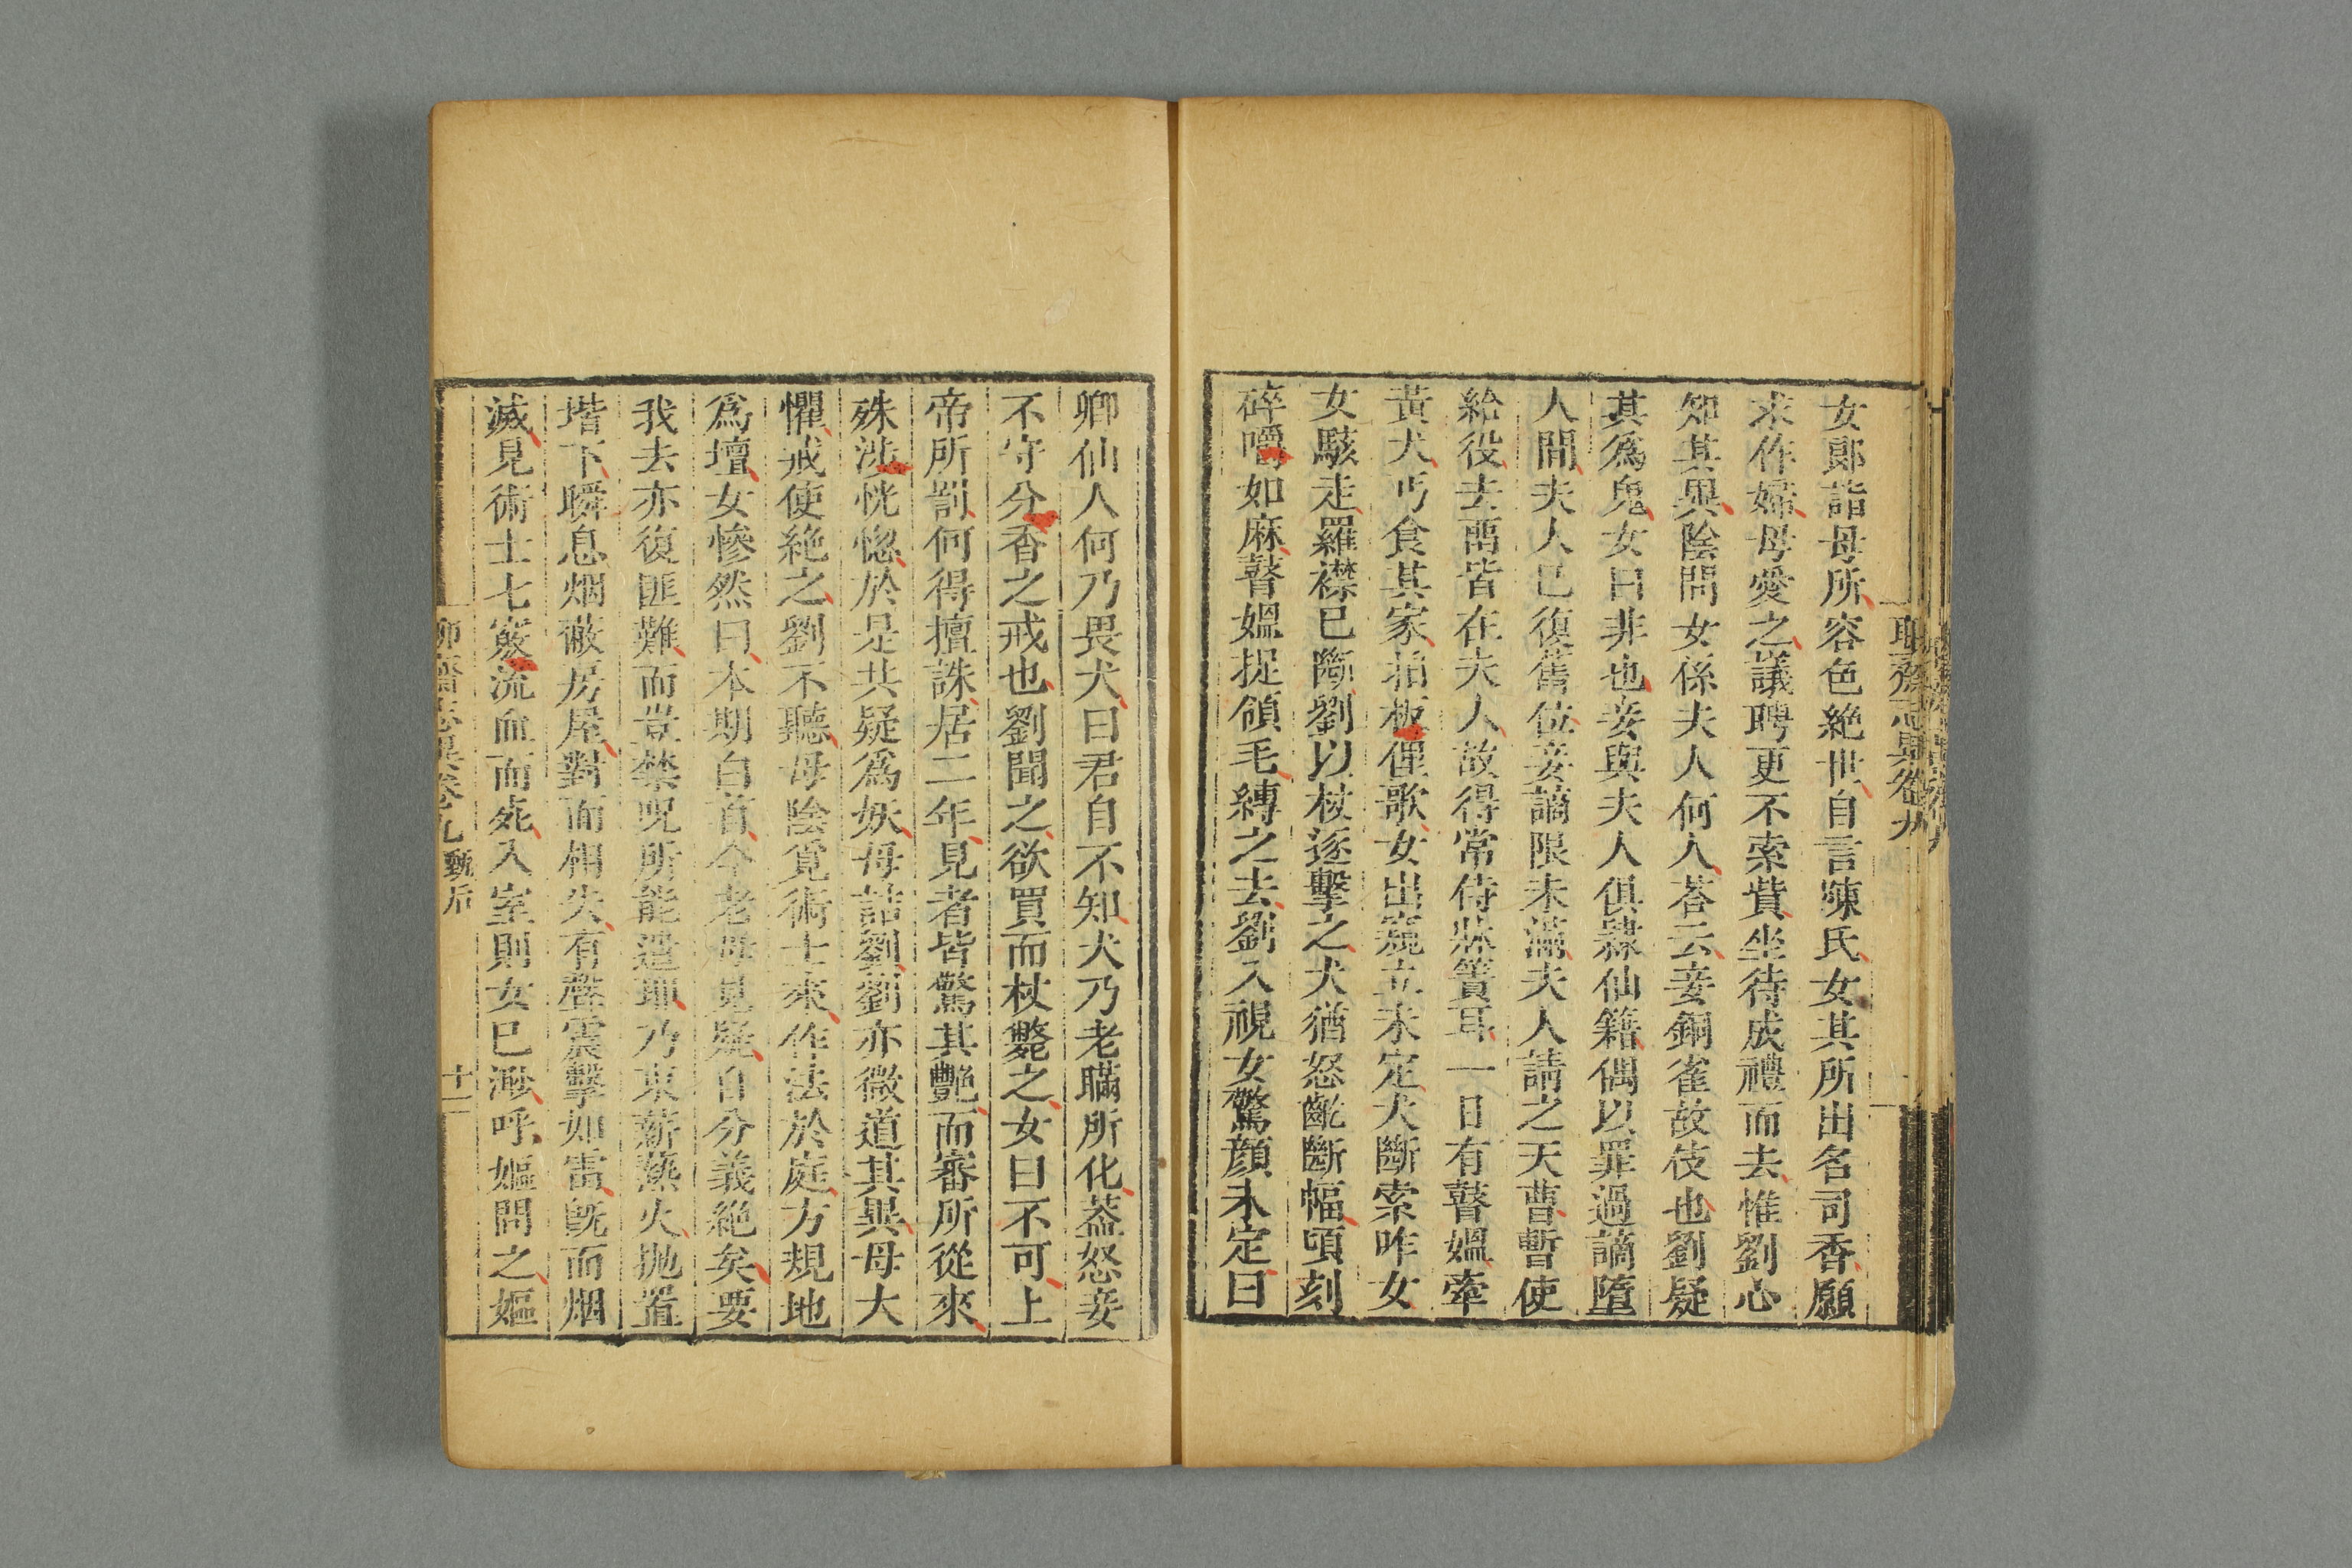 聊齋志異卷九
女郞詣母所容色絶世自言陳氏女其所出名司香願
求作婦母愛之議聘更不索貲坐待成禮而去惟劉心
知其異陰問女係夫人何人荅云妾銅雀故伎也劉疑
其爲鬼女曰非也妾與夫人俱隸仙籍偶以罪過謫墮
人間夫人已復舊位妾謫限未滿夫人請之天曹暫使
給役去畱皆在夫人故得常侍牀簀耳一日有瞽媼牽
黃犬丐食其家拍板俚歌女出窺立未定犬斷索咋女
女駭走羅襟已斷劉以杖逐擊之犬猶怒齕斷幅頃刻
碎嚼如麻瞽媼捉領毛縛之去劉入視女驚顔未定曰
卿仙人何乃畏犬曰君自不知犬乃老瞞所化葢怒妾
不守分香之戒也劉聞之欲買而杖斃之女曰不可上
帝所罰何得擅誅居二年見者皆驚其艷而審所從來
殊涉恍惚於是共疑爲妖母詰劉劉亦微道其異母大
懼戒使絶之劉不聽母陰覓術士來作法於庭方規地
爲壇女慘然曰本期白首今老母見疑自分義絶矣要
我去亦復匪難而豈禁呪所能遣耶乃束薪爇火抛置
堦下瞬息烟蔽房屋對面相失有聲震擊如雷旣而烟
滅見術士七竅流血而死入室則女已渺呼嫗問之嫗
聊齋志異卷九 甄后 十二